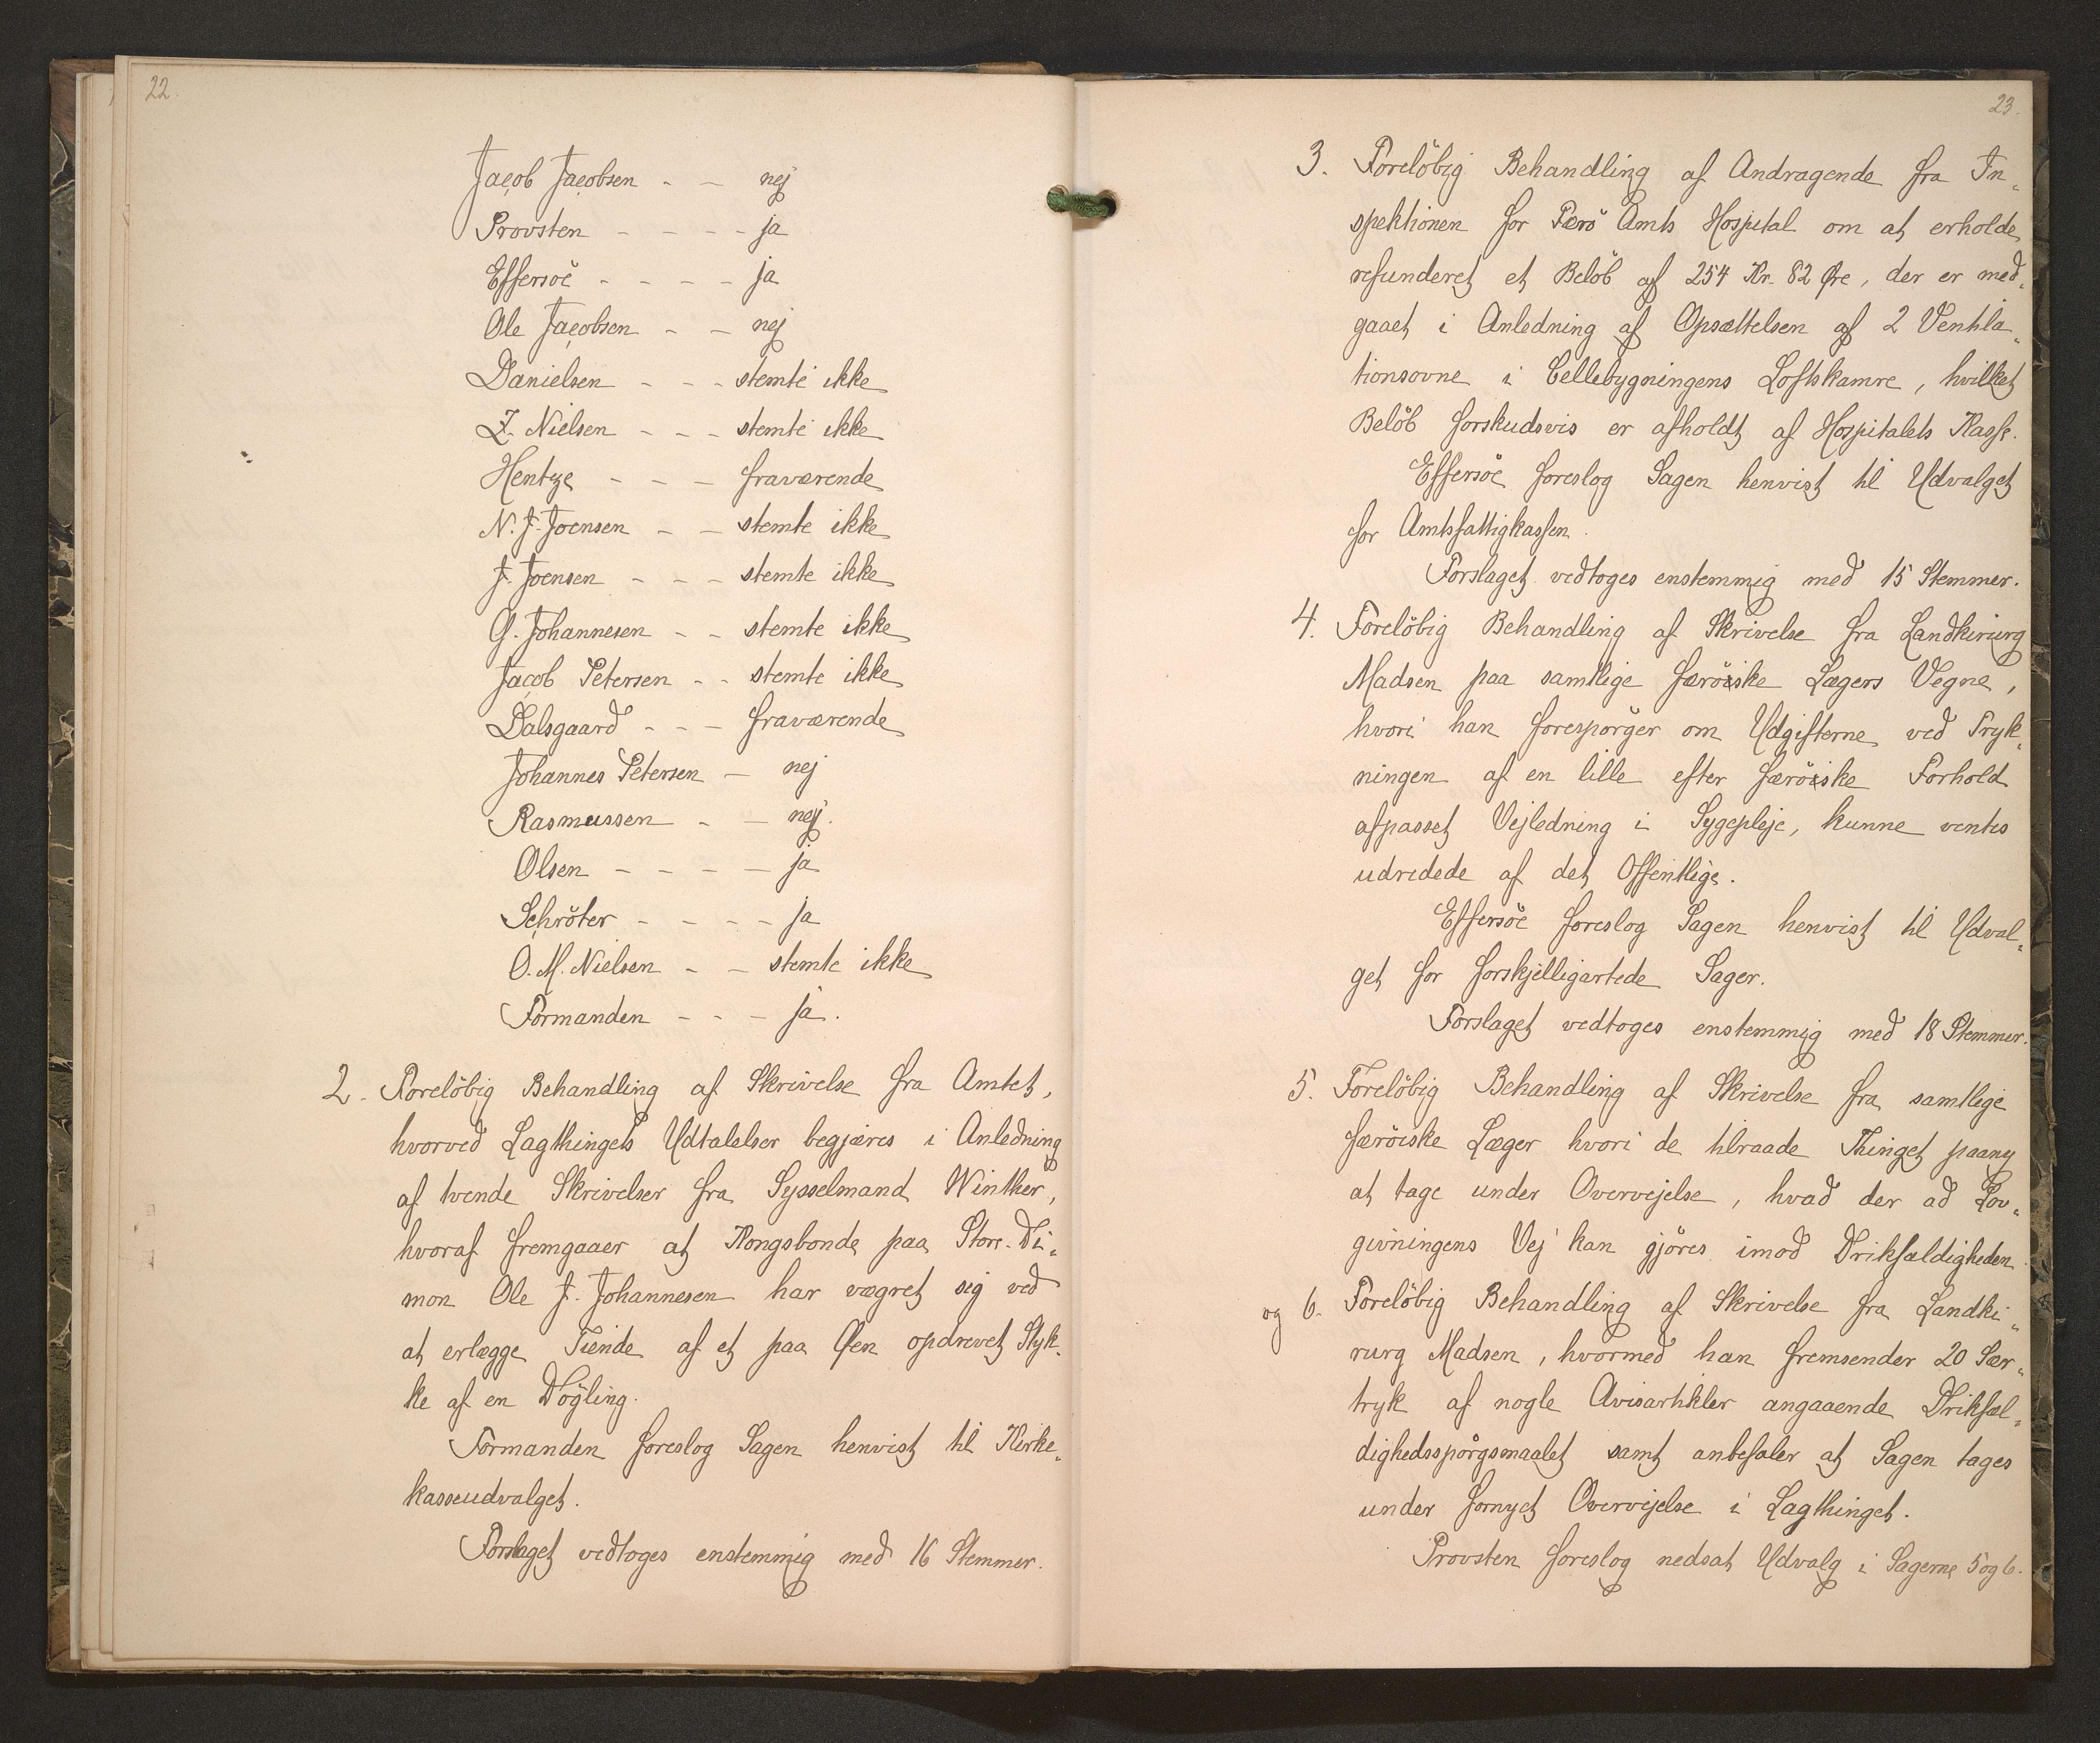 22.
Jacob Jacobsen - - nej
Provsten - - - - ja
Effersöe - - - - ja
Ole Jacobsen - - nej
Danielsen - - - stemte ikke
Z. Nielsen - - - stemte ikke
Hentze - - - fraværende
N. J. Joensen - - stemte ikke
J. Joensen - - - stemte ikke
G. Johannesen - - stemte ikke
Jacob Petersen - - stemte ikke
Dalsgaard - - - fraværende
Johannes Petersen - nej
Rasmussen - - nej.
Olsen - - - - ja
Schröter - - - - ja
O. M. Nielsen - - stemte ikke
Formanden - - - ja.
2. Foreløbig Behandling af Skrivelse fra Amtet,
hvorved Lagthingets Udtalelser begjæres i Anledning
af tvende Skrivelser fra Sysselmand Winther,
hvoraf fremgaaer at Kongsbonde paa Store-Di-
mon Ole J. Johannesen har vægret sig ved
at erlægge Tiende af et paa Øen opdrevet Styk-
ke af en Døgling.
Formanden foreslog Sagen henvist til Kirke-
kasseudvalget.
Forslaget vedtoges enstemmig med 16 Stemmer.
23.
3. Foreløbig Behandling af Andragende fra In-
spektionen for Færö Amts Hospital om at erholde
refunderet et Beløb af 254 Kr. 82 Øre, der er med-
gaaet i Anledning af Opsættelsen af 2 Ventila-
tionsovne i Cellebygningens Loftskamre, hvilket
Beløb forskudsvis er afholdt af Hospitalets Kasse.
Effersöe foreslog Sagen henvist til Udvalget
for Amtsfattigkassen.
Forslaget vedtoges enstemmig med 15 Stemmer.
4. Foreløbig Behandling af Skrivelse fra Landkirurg
Madsen paa samtlige færöiske Lægers Vegne,
hvori han forespörger om Udgifterne ved Tryk-
ningen af en lille efter færöiske Forhold
afpasset Vejledning i Sygepleje, kunne ventes
udredede af det Offentlige.
Effersöe foreslog Sagen henvist til Udval-
get for forskjelligartede Sager.
Forslaget vedtoges enstemmig med 18 Stemmer.
5. Foreløbig Behandling af Skrivelse fra samtlige
færöiske Læger hvori de tilraade Thinget paany
at tage under Overvejelse, hvad der ad Lov-
givningens Vej kan gjöres imod Drikfældigheden
og 6. Foreløbig Behandling af Skrivelse fra Landki-
rurg Madsen, hvormed han fremsender 20 Sær-
tryk af nogle Avisartikler angaaende Drikfæl-
dighedsspörgsmaalet samt anbefaler at Sagen tages
under fornyet Overvejelse i Lagthinget.
Provsten foreslog nedsat Udvalg i Sagerne 5 og 6.